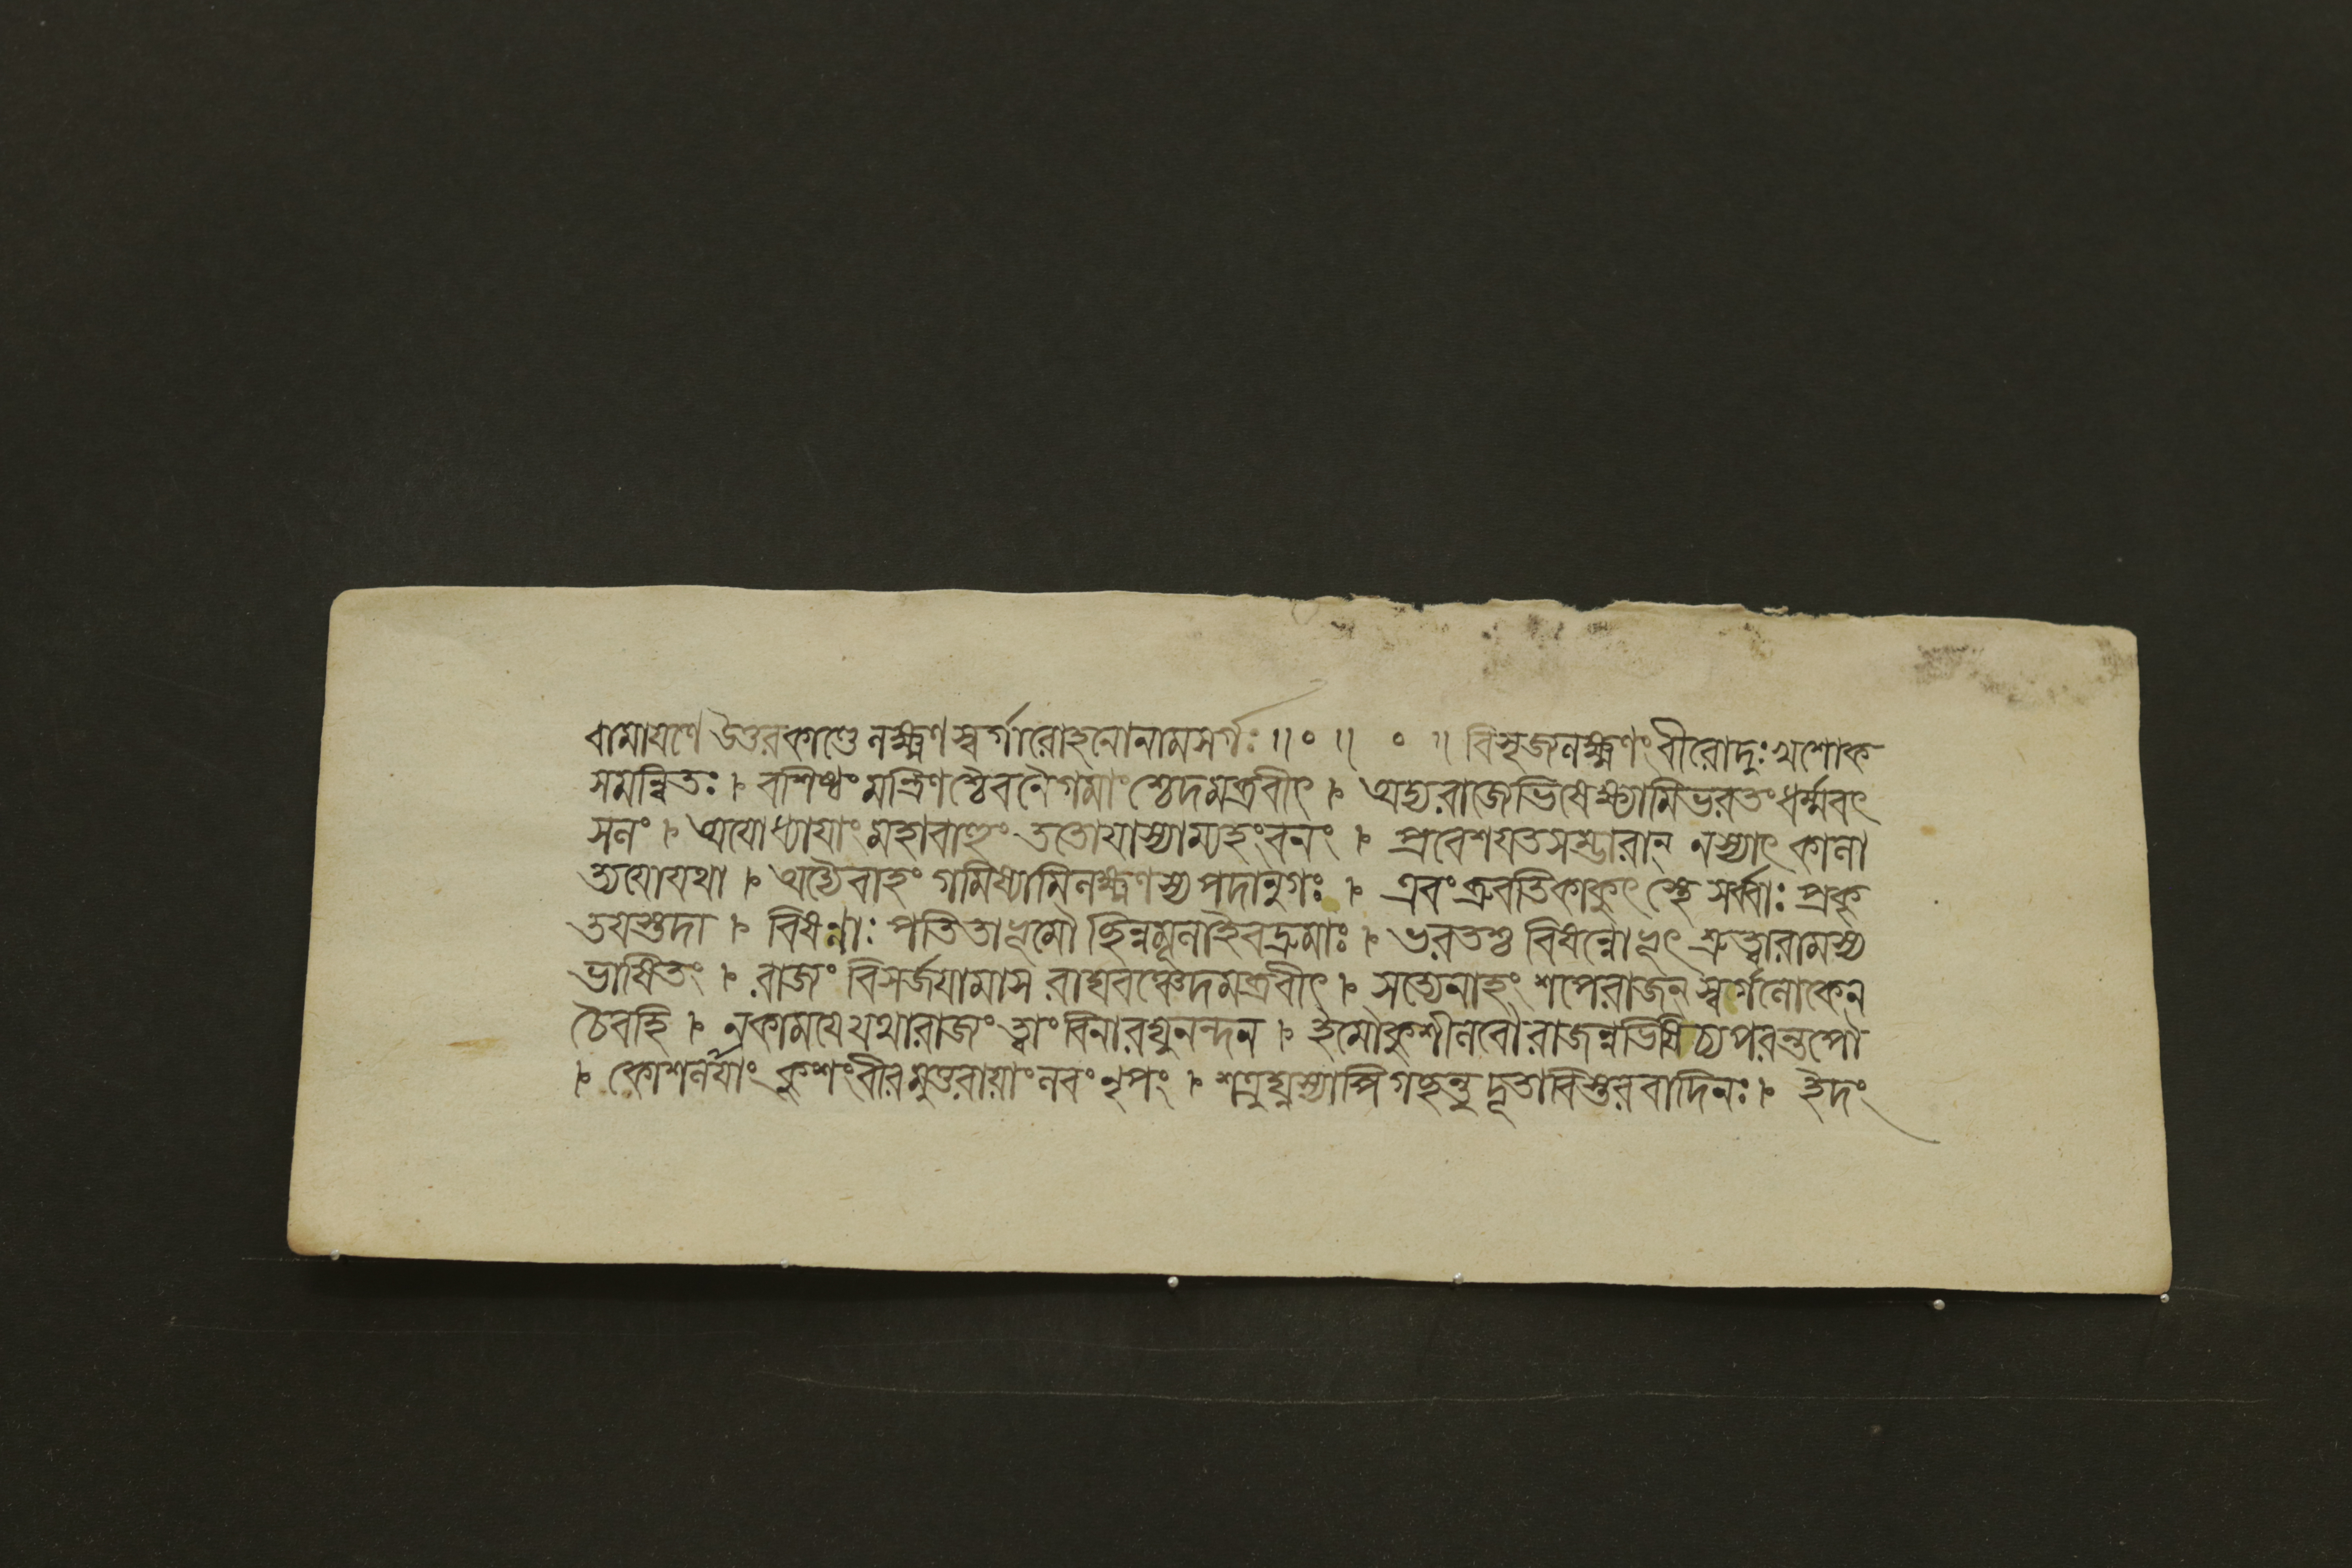 রামায়ণে উত্তরকাণ্ডে লক্ষ্মণস্বর্গারোহনোনামসর্গঃ ॥০॥ ০ ॥ বিসৃজলক্ষ্মণংবীরোদুঃখশোক
সমন্বিতঃ । বশিষ্ঠং মন্ত্রিণশ্চৈবনৈগমাংশ্চেদমব্রবীৎ । অদ্যরাজেভিষেক্ষ্যামিভরতংধর্ম্মবৎ
সলং । অযোধ্যাযাংমহাবাহুং ততোযাস্যাম্যহংবনং । প্রবেশযতসম্ভারান্ নস্যাৎ কালা
ত্যযোযথা । অদ্যৈবাহং গমিষ্যামিলক্ষ্মণস্যপদানুগঃ । এবংব্রুবতিকাকুৎস্থে সর্ব্বাঃ প্রকৃ
তযস্তদা । বিষণ্ণাঃ পতিতাভূমৌ ছিন্নমূলাইবদ্রুমাঃ । ভরতশ্চ বিষন্নোভূৎ শ্রুত্বারামস্য
ভাষিতং । রাজং বিসর্জযামাস রাঘবঞ্চেদমব্রবীৎ । সত্যেনাহং শপেরাজন্ স্বর্গলোকেন
চৈবহি । নকামযেযথারাজং ত্বাংবিনারঘুনন্দন । ইমৌকুশীলবৌরাজন্নভিষিচ্যপরন্তপৌ
। কোশলর্যাং কুশংবীরমুত্তরাযাংলবংনৃপং । শত্রুঘ্নস্যাপিগচ্ছন্তু দূতাবিস্তরবাদিনঃ । ইদং